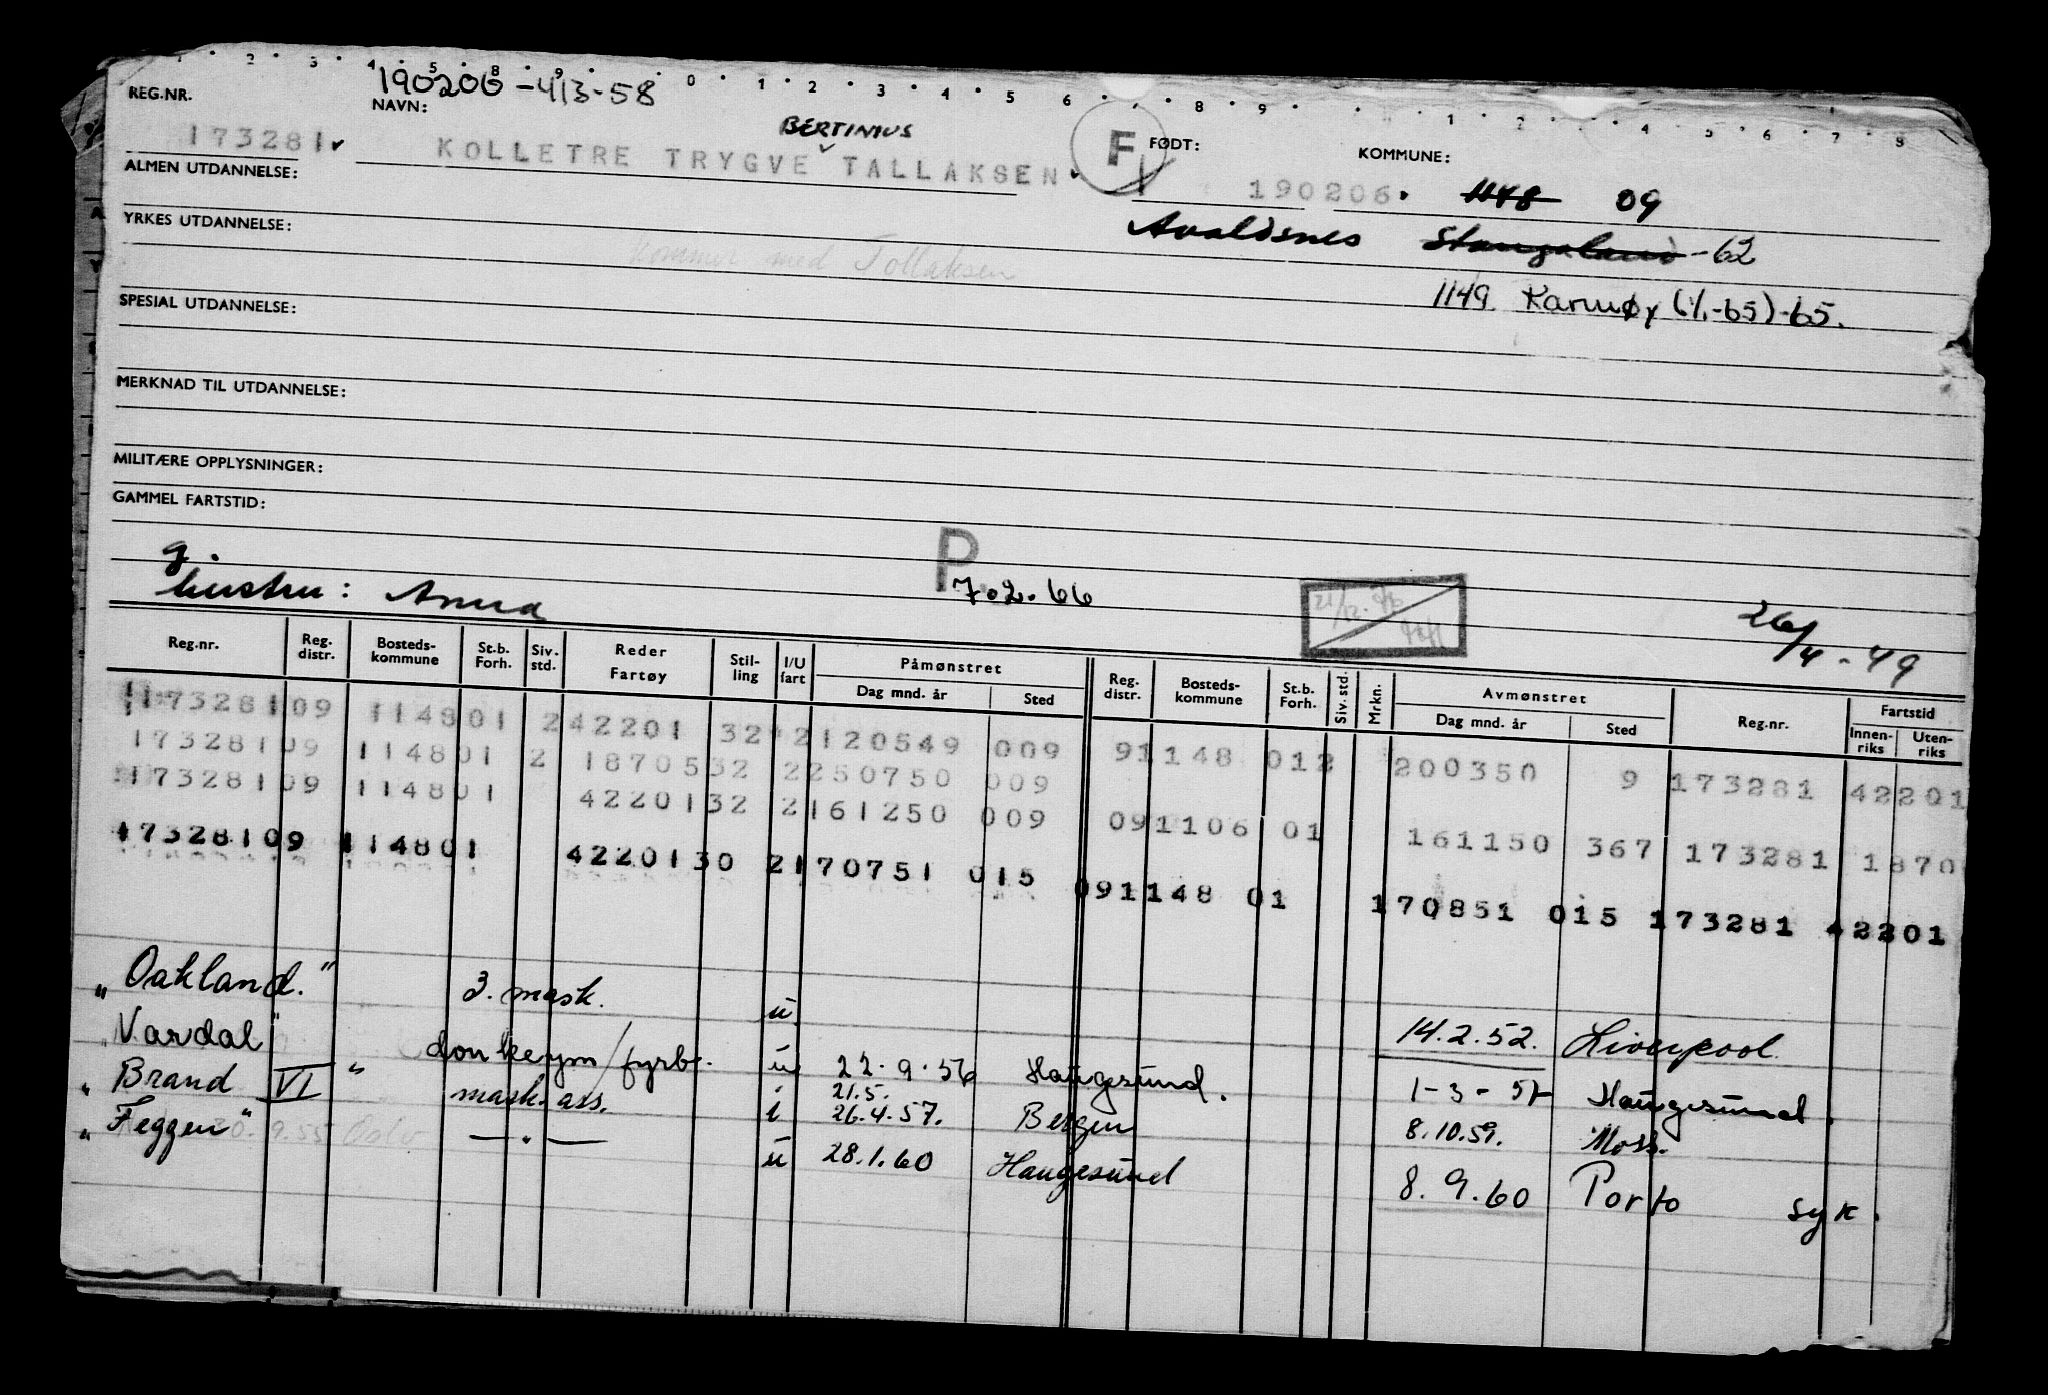 190206-413-58
REG.NR.
NAVN:
BERTINIUS
173281
KOLLETRE TRYGVE TALLAKSEN
F
FØDT:
KOMMUNE:
190206.
1148 09
ALMEN UTDANNELSE:
Avaldsnes Stangaland -62
YRKES UTDANNELSE:
kommer med Tollaksen
1149 Karmøy (1/1-65)-65.
SPESIAL UTDANNELSE:
MERKNAD TIL UTDANNELSE:
MILITÆRE OPPLYSNINGER:
GAMMEL FARTSTID:
g.
hustru: Anna
P. 7.2.66
26/4-49
Reg.nr. Reg. distr. Bosteds-kommune St.b. Forh. Siv. std. Reder Fartøy Stil-ling I/U fart Påmønstret Dag mnd. år Sted Reg. distr. Bosteds-kommune St.b. Forh. Siv. std. Mrkn. Avmønstret Dag mnd. år Sted Reg.nr. Fartstid Innen-riks Uten-riks
17328109 114801 242201 32 2120549 009 91148 012 200350 9 173281 42201
17328109 114801 2 1870532 2250750 009 091106 01 161150 367 173281 1870
17328109 114801 4220132 2161250 009
17328109 114801 4220130 2170751 015 091148 01 170851 015 173281 42201
"Oakland." 3. mask. u 14.2.52. Liverpool
"Vardal" donkeym/fyrb. u 22.9.56 Haugesund. 1-3-57 Haugesund.
21.5.
"Brand VI" mask. ass. i 26.4.57. Bergen 8.10.59. Moss.
"Feggen" —"— u 28.1.60 Haugesund 8.9.60 Porto syk.